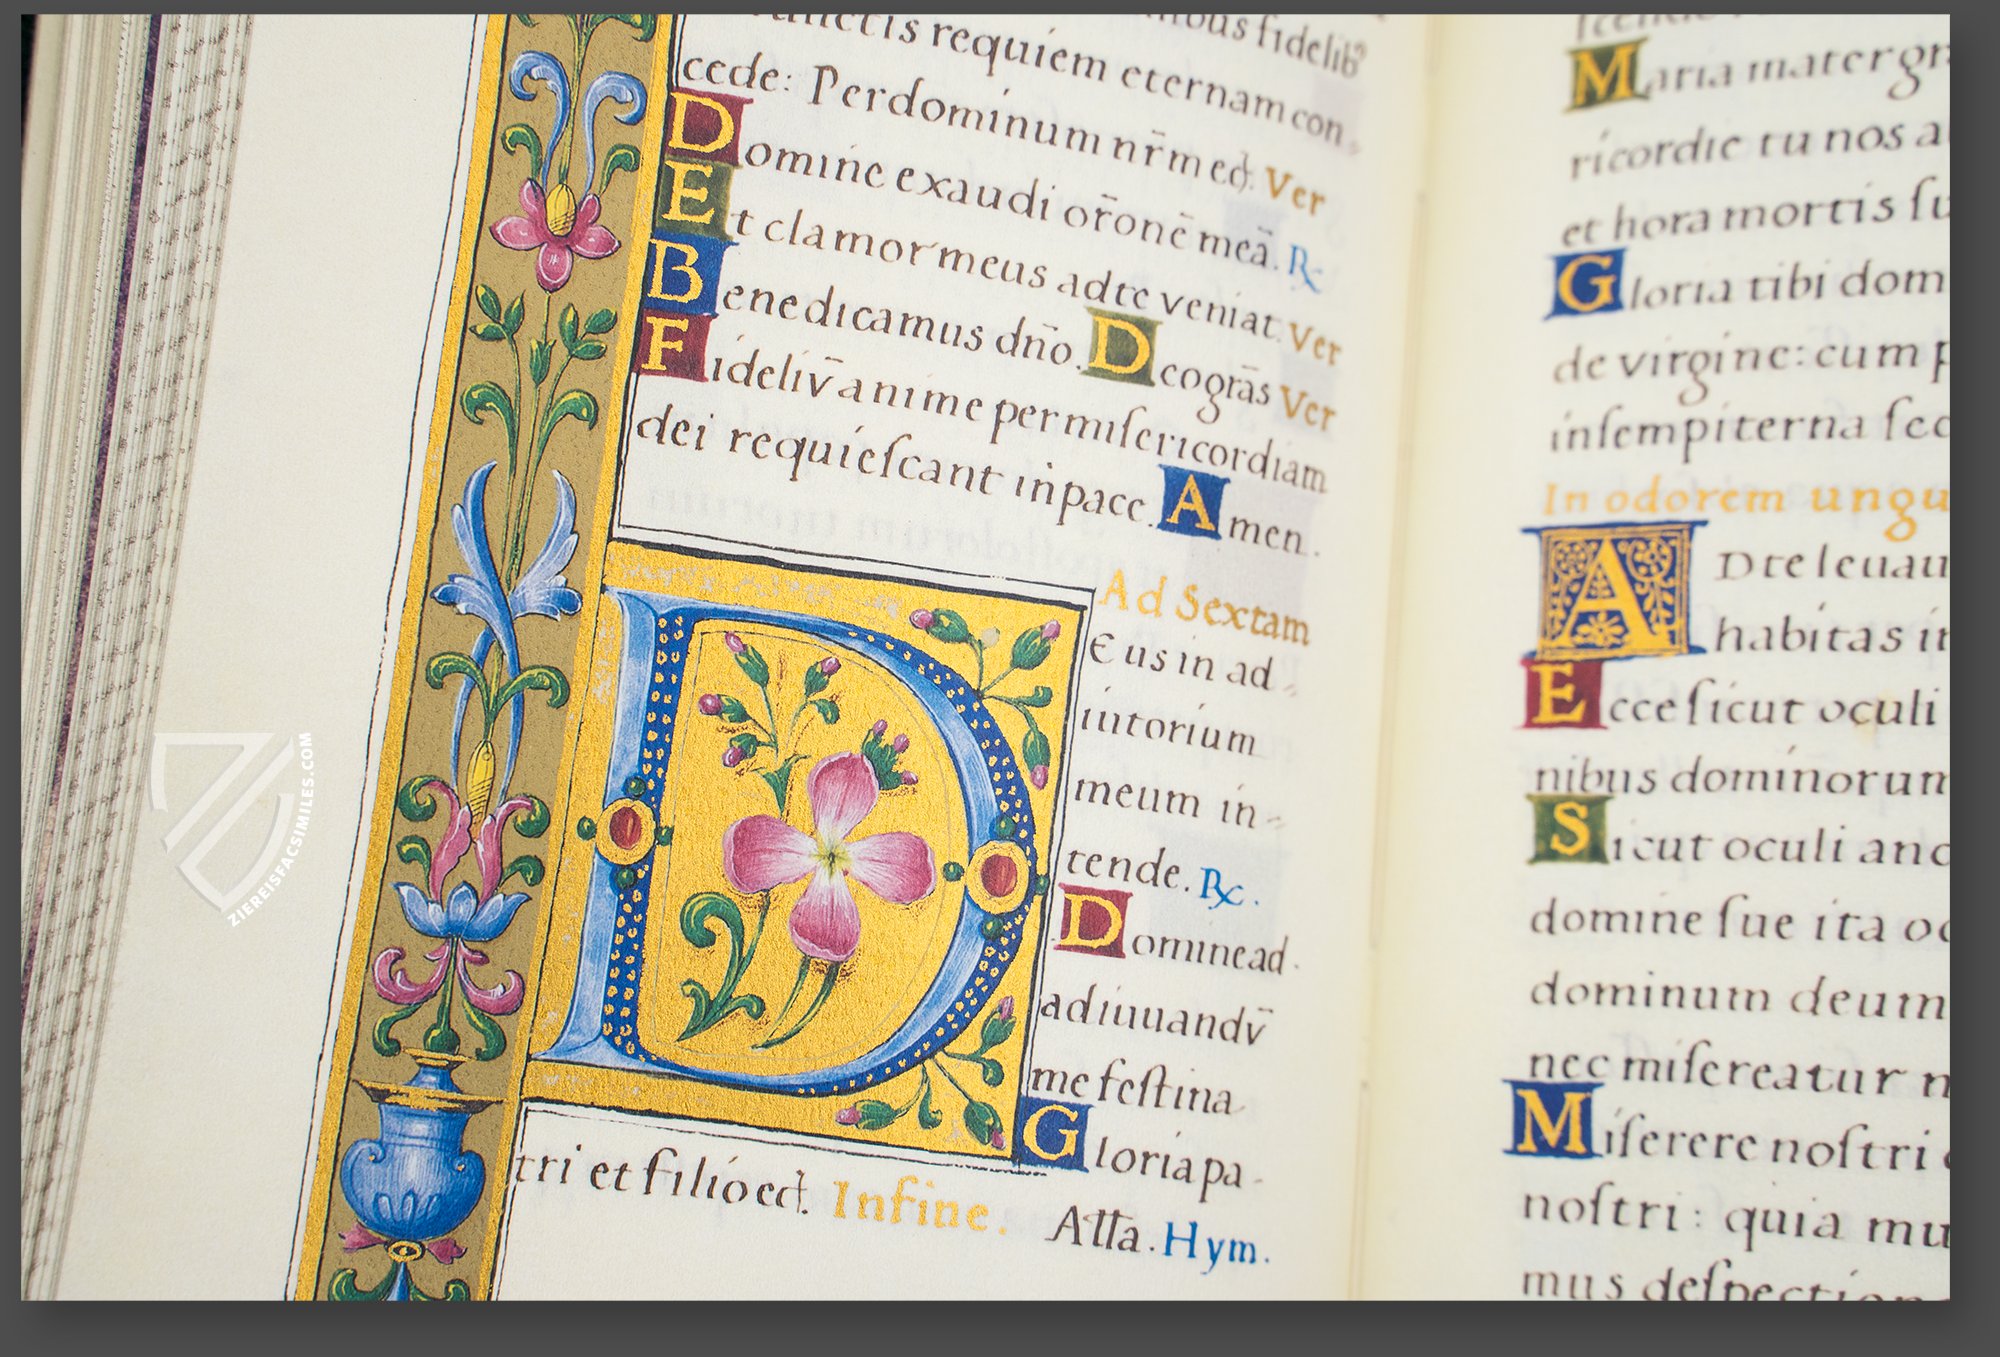 requiem eternam con-
cede: Per dominum nr̄m ec̄t. Ver
Domine exaudi or̄onē meā. ℞
Et clamor meus ad te veniat. Ver
Benedicamus dn̄o. Deo gr̄as Ver
Fideliv̄ anime per miſericordiam
dei requieſcant in pace. Amen.
Ad Sextam
Deus in ad-
iutorium
meum in-
tende. ℞.
Domine ad
adiuuandv̄
me feſtina
Gloria pa-
tri et filio ec̄t. In fine. Alla. Hym.
Maria mater gr
ricordie tu nos a
et hora mortis ſu
Gloria tibi dom
de virgine: cum p
in ſempiterna ſec
In odorem ungu
AD te leuau
habitas in
Ecce ſicut oculi
nibus dominorum
Sicut oculi anc
domine ſue ita oc
dominum deum
nec miſereatur n
Miſerere noſtri
noſtri: quia mu
mus deſpection
ZIEREISFACSIMILES.COM